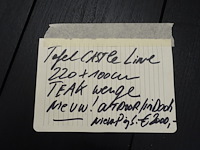 Tafel CASTLE Line
220 x 100 cm
TEAK wenge
NIEUW! OUTDOOR/inDOOR
NieuwPrijs: € 2000,-